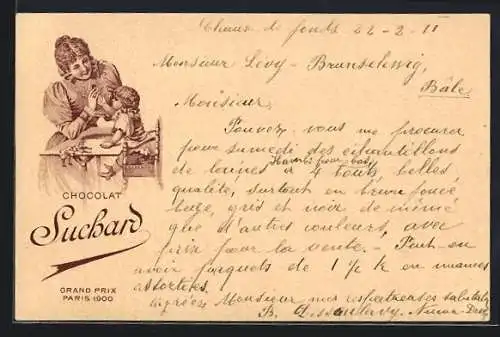 Chaux de fonds 22-2-11
Monsieur Lévy-Brunschwig,
Bâle
Monsieur,
Pouvez-vous me procurer
pour samedi des échantillons
de laines à 4 bouts, belles
qualité, surtout en brun foncé
beige, gris et noir de même
que d'autres couleurs, avec
prix pour la vente. - Peut-on
avoir par paquets de 1/2 k en nuances
assorties.
Agréez Monsieur mes respectueuses
B.
CHOCOLAT
Suchard
GRAND PRIX
PARIS 1900